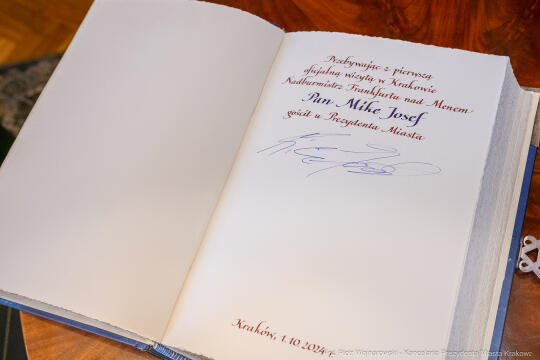 Przebywając z pierwszą
oficjalną wizytą w Krakowie
Nadburmistrz Frankfurtu nad Menem
Pan Mike Josef
gościł u Prezydenta Miasta
Kraków, 1.10.2024 r.
Piotr Wojnarowski - Kancelaria Prezydenta Miasta Krakowa